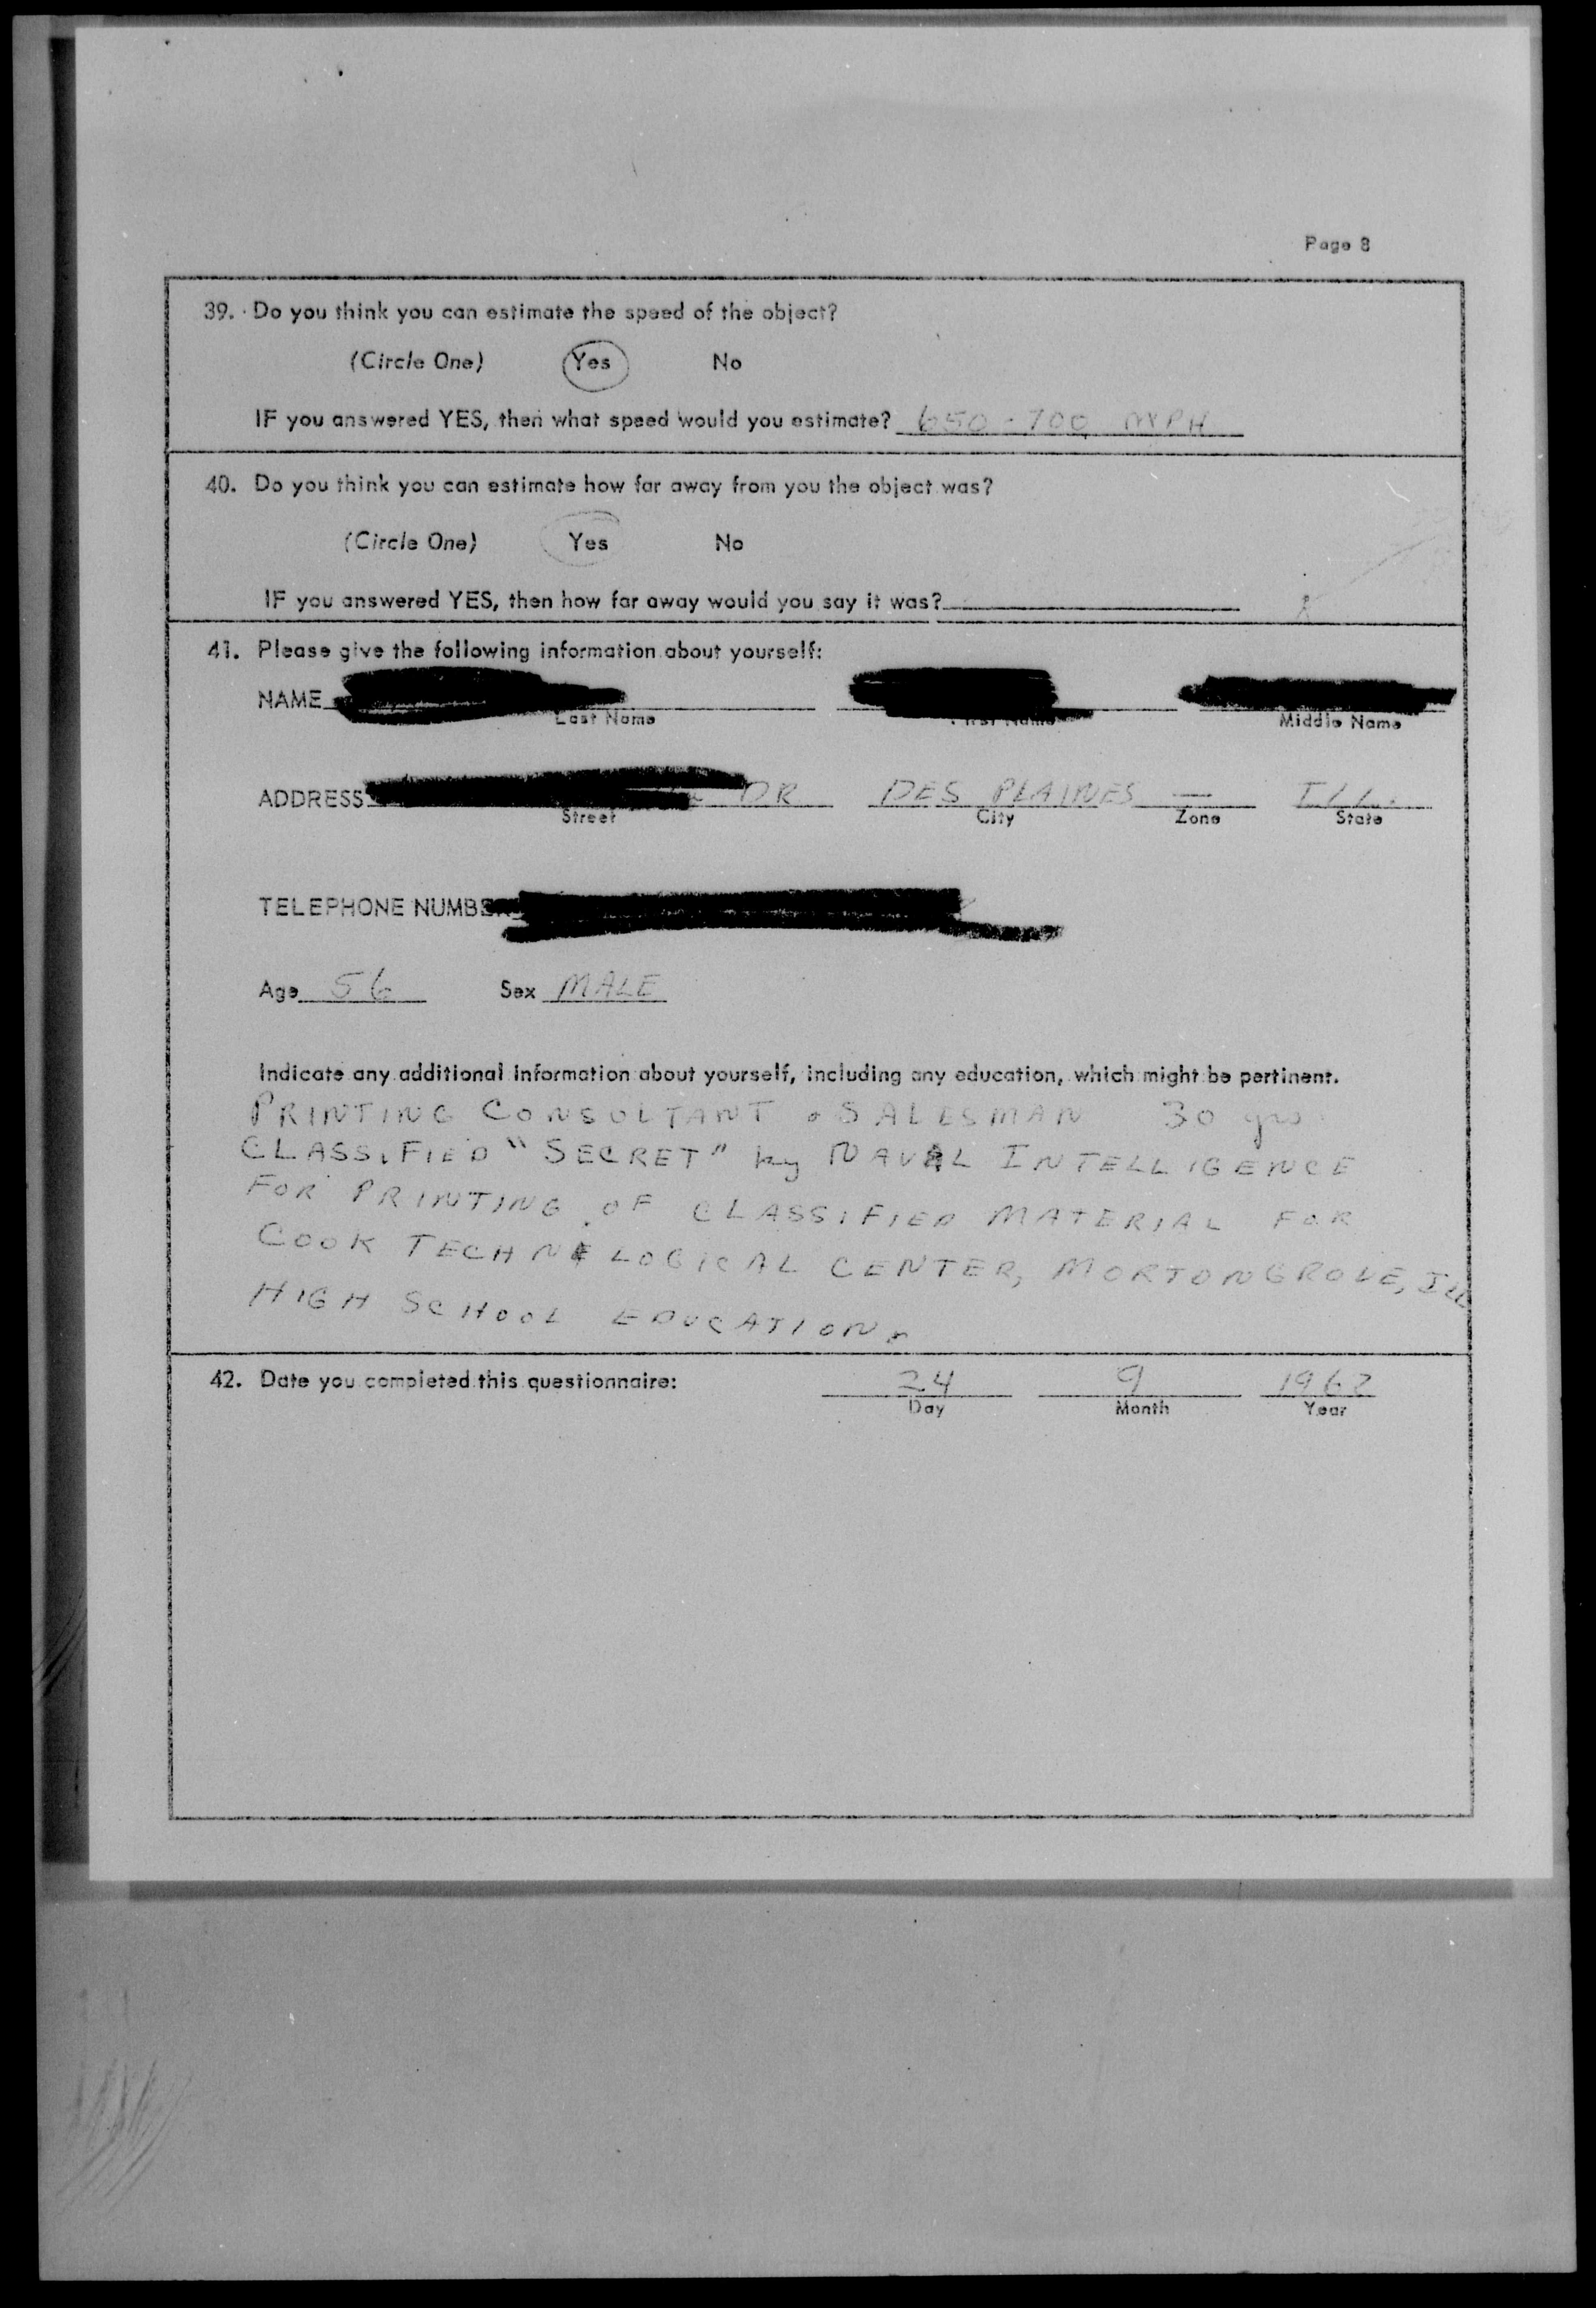 Page 8
39. Do you think you can estimate the speed of the object?
(Circle One) Yes No
IF you answered YES, then what speed would you estimate? 650 - 700 MPH
40. Do you think you can estimate how far away from you the object was?
(Circle One) Yes No
IF you answered YES, then how far away would you say it was?
41. Please give the following information about yourself:
NAME
Last Name First Name Middle Name
ADDRESS DR DES PLAINES — ILL.
Street City Zone State
TELEPHONE NUMBER
Age 56 Sex MALE
Indicate any additional information about yourself, including any education, which might be pertinent.
PRINTING CONSULTANT & SALESMAN 30 yrs.
CLASSIFIED "SECRET" by NAVAL INTELLIGENCE
FOR PRINTING OF CLASSIFIED MATERIAL FOR
COOK TECHNOLOGICAL CENTER, MORTONGROVE, Ill
HIGH SCHOOL EDUCATION.
42. Date you completed this questionnaire: 24 9 1962
Day Month Year